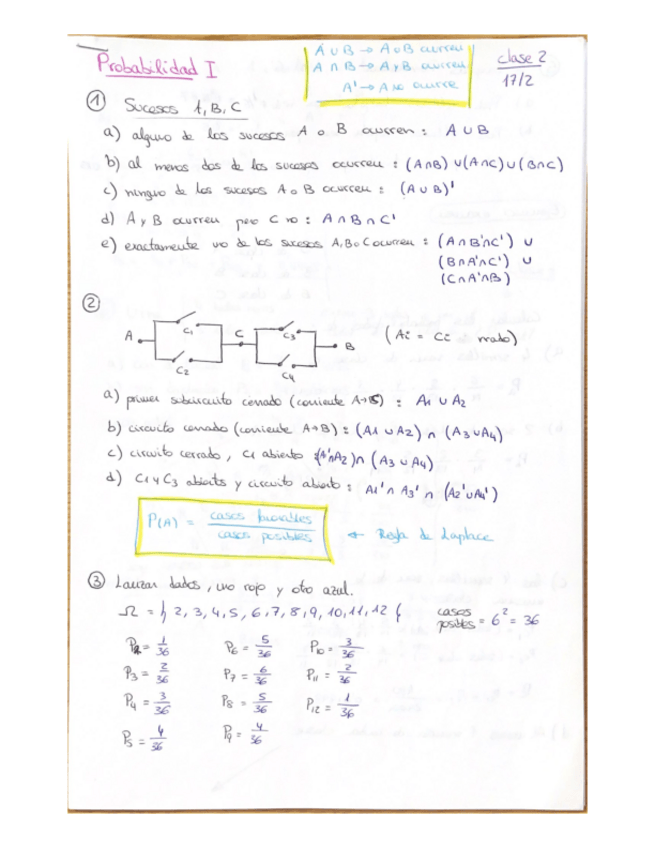 Probabilidad I
A ∪ B → A o B ocurren
A ∩ B → A y B ocurren
A' → A no ocurre
clase 2
17/2
① Sucesos A, B, C
a) alguno de los sucesos A o B ocurren : A ∪ B
b) al menos dos de los sucesos ocurren : (A∩B) ∪ (A∩C) ∪ (B∩C)
c) ninguno de los sucesos A o B ocurren : (A ∪ B)'
d) A y B ocurren pero C no : A ∩ B ∩ C'
e) exactamente uno de los sucesos A, B o C ocurren : (A ∩ B' ∩ C') ∪
(B ∩ A' ∩ C') ∪
(C ∩ A' ∩ B)
②
A C1 C2 C C3 C4 B (Ai = Ci rrado)
a) primer subcircuito cerrado (corriente A→C) : A1 ∪ A2
b) circuito cerrado (corriente A→B) : (A1 ∪ A2) ∩ (A3 ∪ A4)
c) circuito cerrado, C1 abierto : (A1' ∩ A2) ∩ (A3 ∪ A4)
d) C1 y C3 abiertos y circuito abierto : A1' ∩ A3' ∩ (A2' ∪ A4')
P(A) = casos favorables / casos posibles ← Regla de Laplace
③ Lanzar dados, uno rojo y otro azul.
Ω = { 2, 3, 4, 5, 6, 7, 8, 9, 10, 11, 12 } casos posibles = 6² = 36
P2 = 1/36 P6 = 5/36 P10 = 3/36
P3 = 2/36 P7 = 6/36 P11 = 2/36
P4 = 3/36 P8 = 5/36 P12 = 1/36
P5 = 4/36 P9 = 4/36